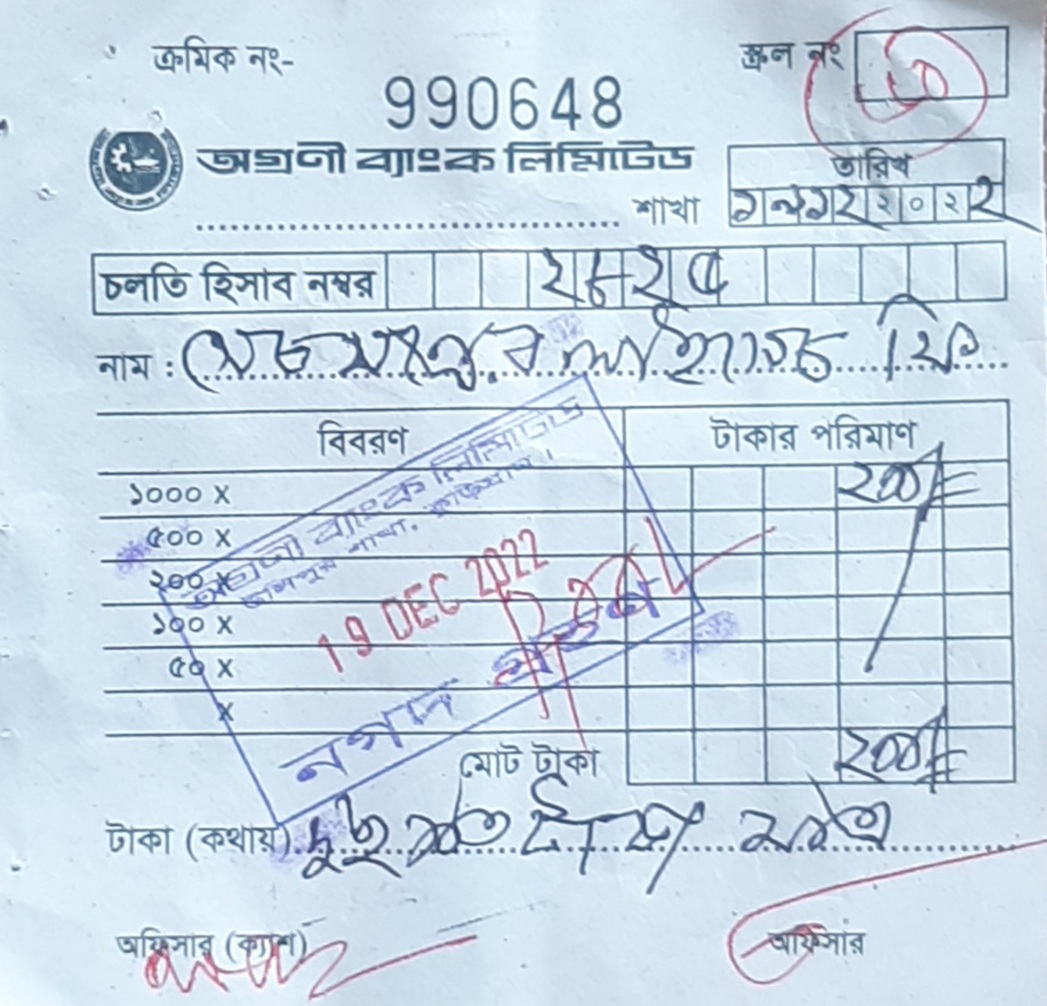 ক্রমিক নং-
স্ক্রল নং
990648
অগ্রণী ব্যাংক লিমিটেড
তারিখ
শাখা
১৯১২২০২২
চলতি হিসাব নম্বর
নাম :
বিবরণ টাকার পরিমাণ
১০০০ X ২০০/=
৫০০ X
২০০ X
১০০ X
৫০ X
X
অগ্রণী ব্যাংক লিমিটেড
19 DEC 2022
নগদ গ্রহণ
মোট টাকা ২০০/=
টাকা (কথায়) দুইশত টাকা মাত্র
অফিসার (ক্যাশ) অফিসার